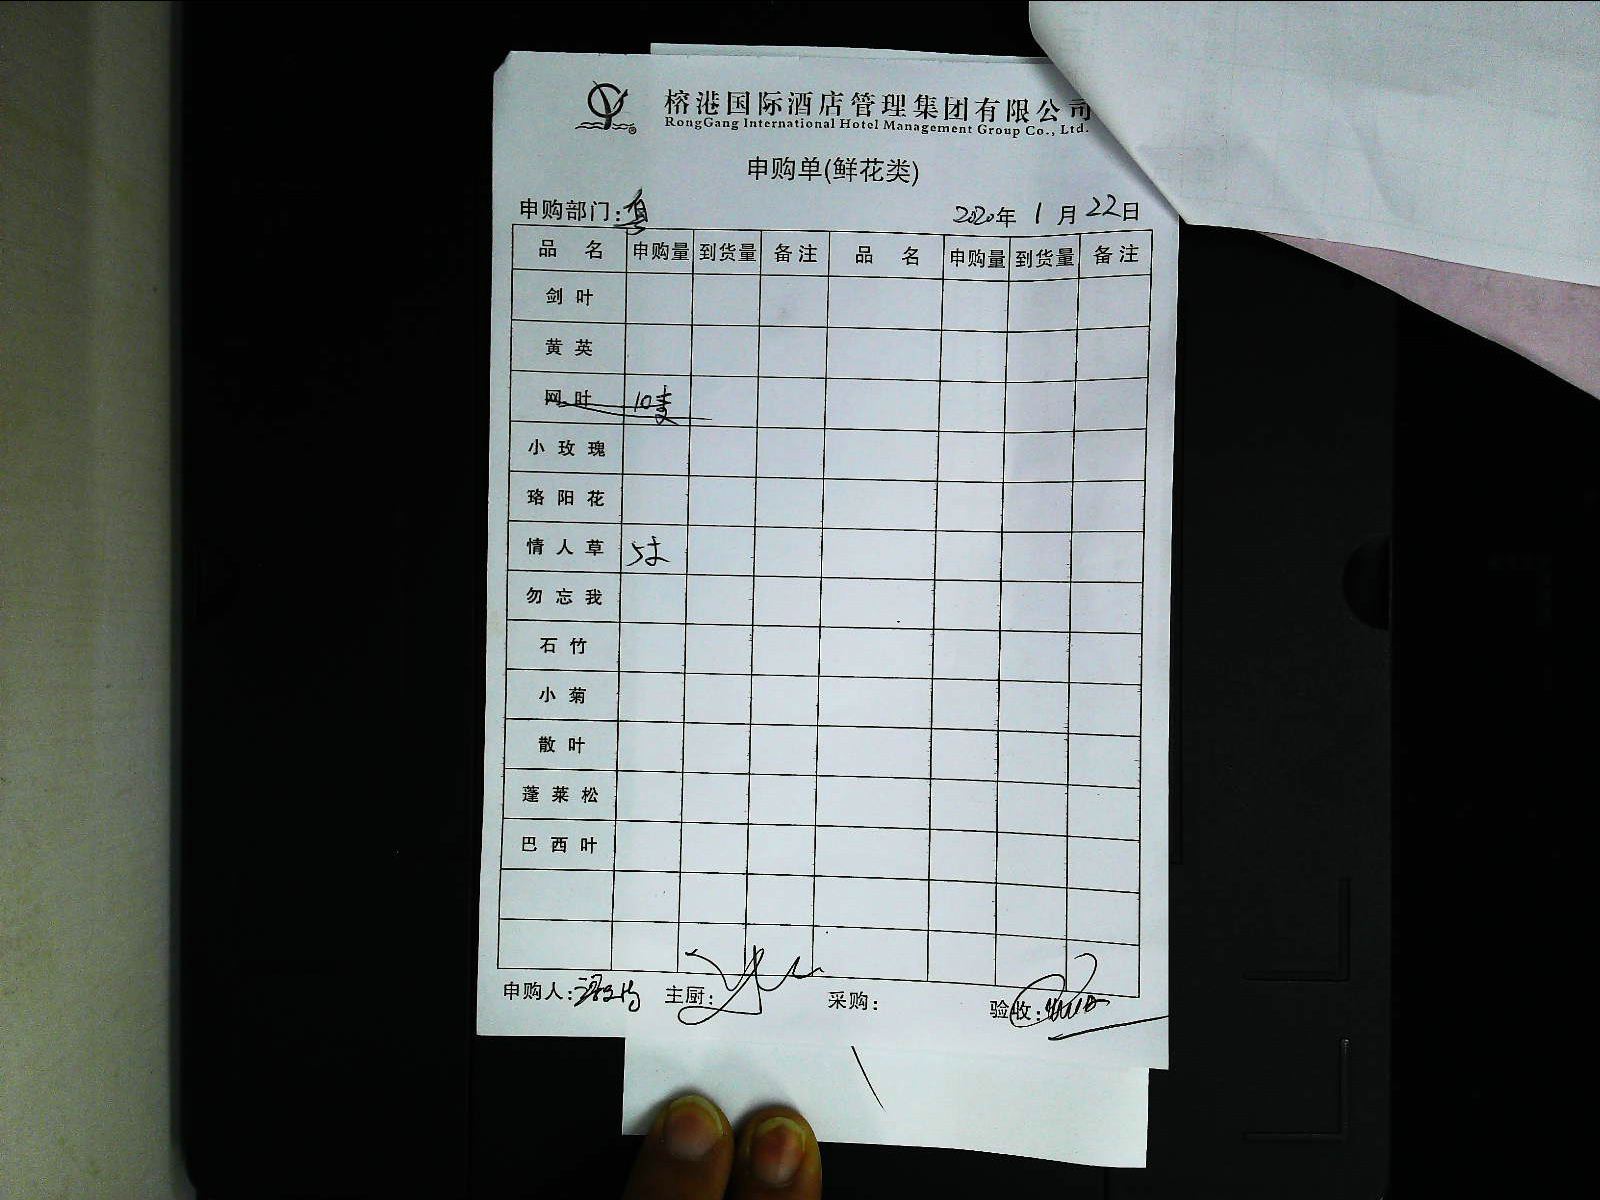 榕港国际酒店管理集团有限公司
RongGang International Hotel Management Group Co., Ltd.
申购单(鲜花类)
申购部门: 2020年 1月 22日
品名 申购量 到货量 备注 品名 申购量 到货量 备注
剑叶
黄英
网叶 10支
小玫瑰
珞阳花
情人草 5支
勿忘我
石竹
小菊
散叶
蓬莱松
巴西叶
申购人: 主厨: 采购: 验收: